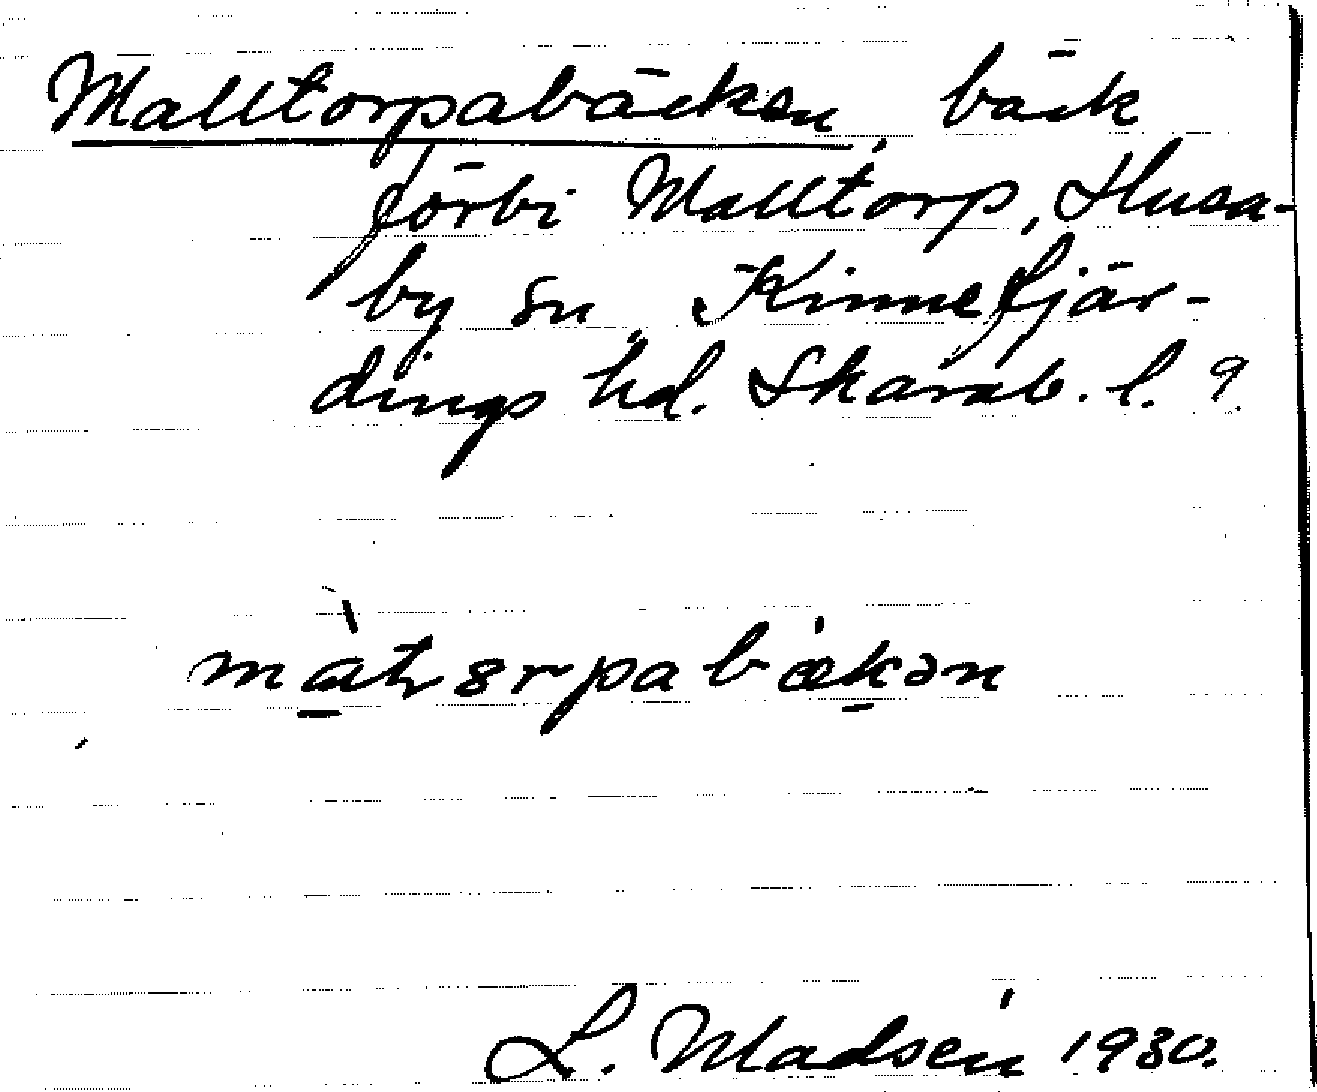 Malltorpabäcken, bäck
förbi Malltorp, Husa-
by sn, Kinnefjär-
dings hd. Skarab. l.
L. Madsén 1930.